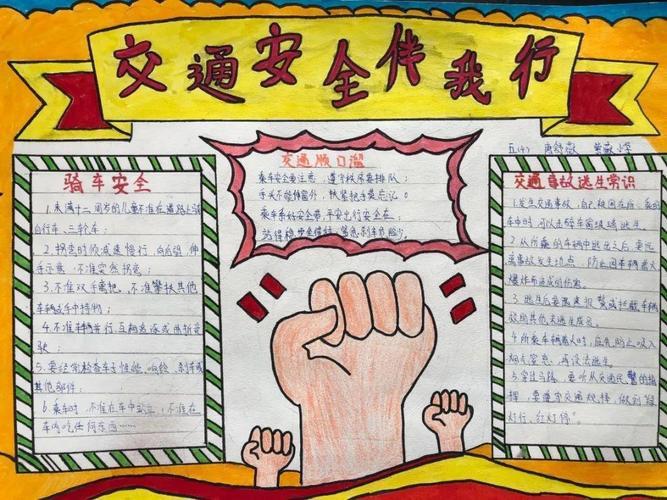 交通安全伴我行
五(4)
交通顺口溜
乘车安全要注意，遵守秩序要排队；
手头不能伸窗外，扶紧把手莫忘记。
乘车系好安全带，平安出行安全在；
站得稳
骑车安全
1.未满十二周岁的儿童不准在道路上骑
自行车、三轮车；
2.拐弯时须减速慢行，向后 伸
手示意，不准突然拐弯；
3.不准双手离把，不准攀扶其他
车辆或手中持物；
4.不准车辆并行、互相追逐或曲折竞
驶；
5.要经常检查车子性能，响铃、刹车或
其他部件；
6.乘车时，不准在车中站立；不准在
车内吃任何东西……
交通事故逃生常识
1.发生交通事故，
车中时，可以击碎车窗玻璃逃生。
2.从所乘的车辆中逃生之后，要远
离事故发生地点，防止因车辆着火
爆炸而造成的伤害。
3.逃生后要离速报警或拦截车辆
救助其他未逃生成员。
4.所乘车辆着火时，应先防止吸入
烟气窒息，再设法逃生。
5.穿过马路，要听从交通民警的指
挥，要遵守交通规则，做到“绿
灯行，红灯停”。